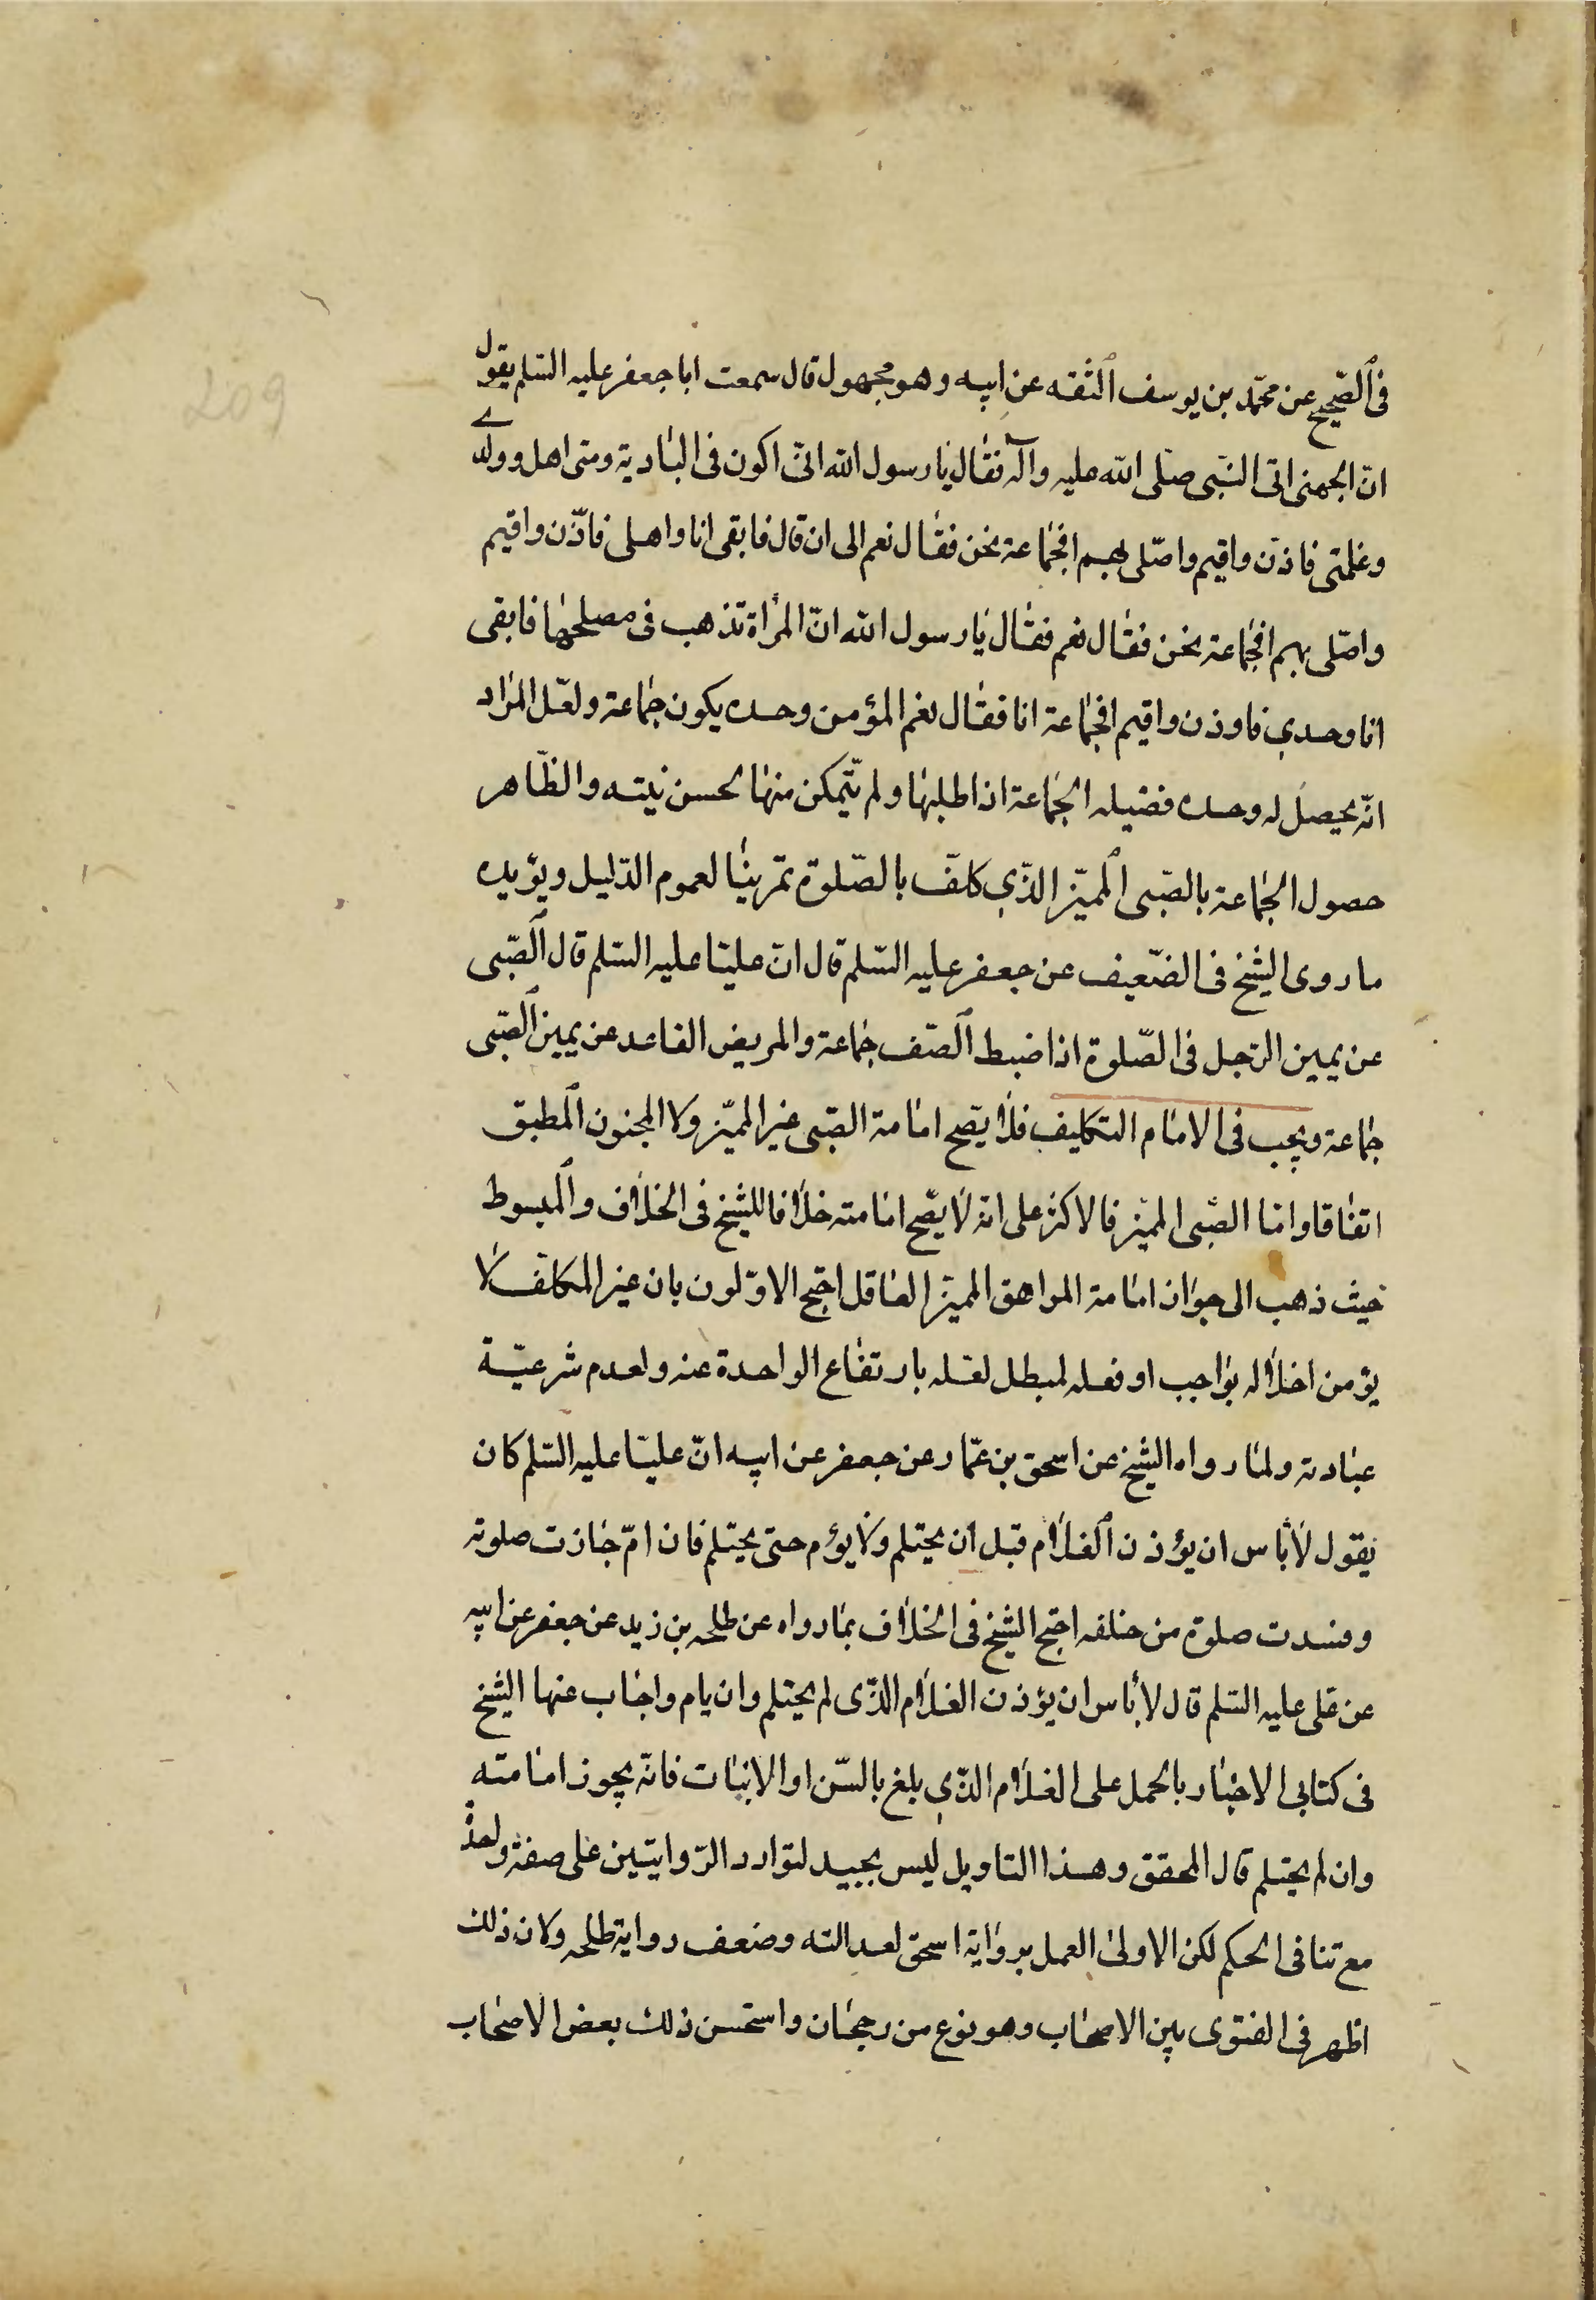 209
فى الصّحيح عن محمّد بن يوسف الثقه عن ابيه وهو مجهول قال سمعت ابا جعفر عليه السّلم يقول
انّ الجهنى اتى النّبى صلّى الله عليه وآله فقال يا رسول الله انّى اكون فى البادية ومعى اهلى وولدى
وغلمتى فاذّن واقيم واصّلى بهم افجماعة نحن فقال نعم الى ان قال فابقى انا واهلى فاذّن واقيم
واصّلى بهم افجماعة نحن فقال نعم فقال يا رسول الله انّ المرأة تذهب فى مصلحتها فابقى
انا وحدي فاوذن واقيم افجماعة انا فقال نعم المؤمن وحده يكون جماعة ولعّل المراد
انّه يحصل له وحده فضيله الجماعة اذا طلبها ولم يتّمكن منها لحسن نيته والظّاهر
حصول الجماعة بالصّبى المميّز الذّي كلّف بالصّلوة تمرينا لعموم الدّليل ويؤيده
ما روى الشيخ فى الضّعيف عن جعفر عليه السّلم قال انّ عليّا عليه السّلم قال الصّبى
عن يمين الرّجل فى الصّلوة اذا ضبط الصّف جماعة والمريض القاعد عن يمين الصّبى
جماعة ويجب فى الامام التكليف فلا يصّح امامة الصّبى غير المميّز ولا المجنون المطبق
اتفاقا وامّا الصّبى المميّز فالاكثر على انه لا يصّح امامته خلافا للشيخ فى الخلاف والمبسوط
حيث ذهب الى جواز امامة المراهق المميّز العاقل احتج الاوّلون بان غير المكلّف لا
يؤمن اخلاله بواجب او فعله لمبطل لعّله بارتفاع الواحدة عنه ولعدم شرعيّة
عبادته ولما رواه الشيخ عن اسحق بن عمّار عن جعفر عن ابيه انّ عليّا عليه السّلم كان
يقول لا باس ان يؤذن الغلام قبل ان يحتلم ولا يؤم حتى يحتلم فان امّ جازت صلوته
وفسدت صلوة من خلفه احتج الشيخ فى الخلاف بما رواه عن طلحه بن زيد عن جعفر عن ابيه
عن على عليه السّلم قال لا بأس ان يؤذن الغلام الذّى لم يحتلم وان يام واجاب عنها الشيخ
فى كتابى الاخبار بالحمل على الغلام الذّي بلغ بالسّن او الانبات فانه يجوز امامته
وان لم يحتلم قال المحقق وهذا التاويل ليس بجيد لتوارد الرّوايتين على صفة واحدة
مع تنافى الحكم لكن الاولى العمل برواية اسحق لعدالته وضعف رواية طلحه ولان ذلك
اظهر فى الفتوى بين الاصحاب وهو نوع من رجحان واستحسن ذلك بعض الاصحاب